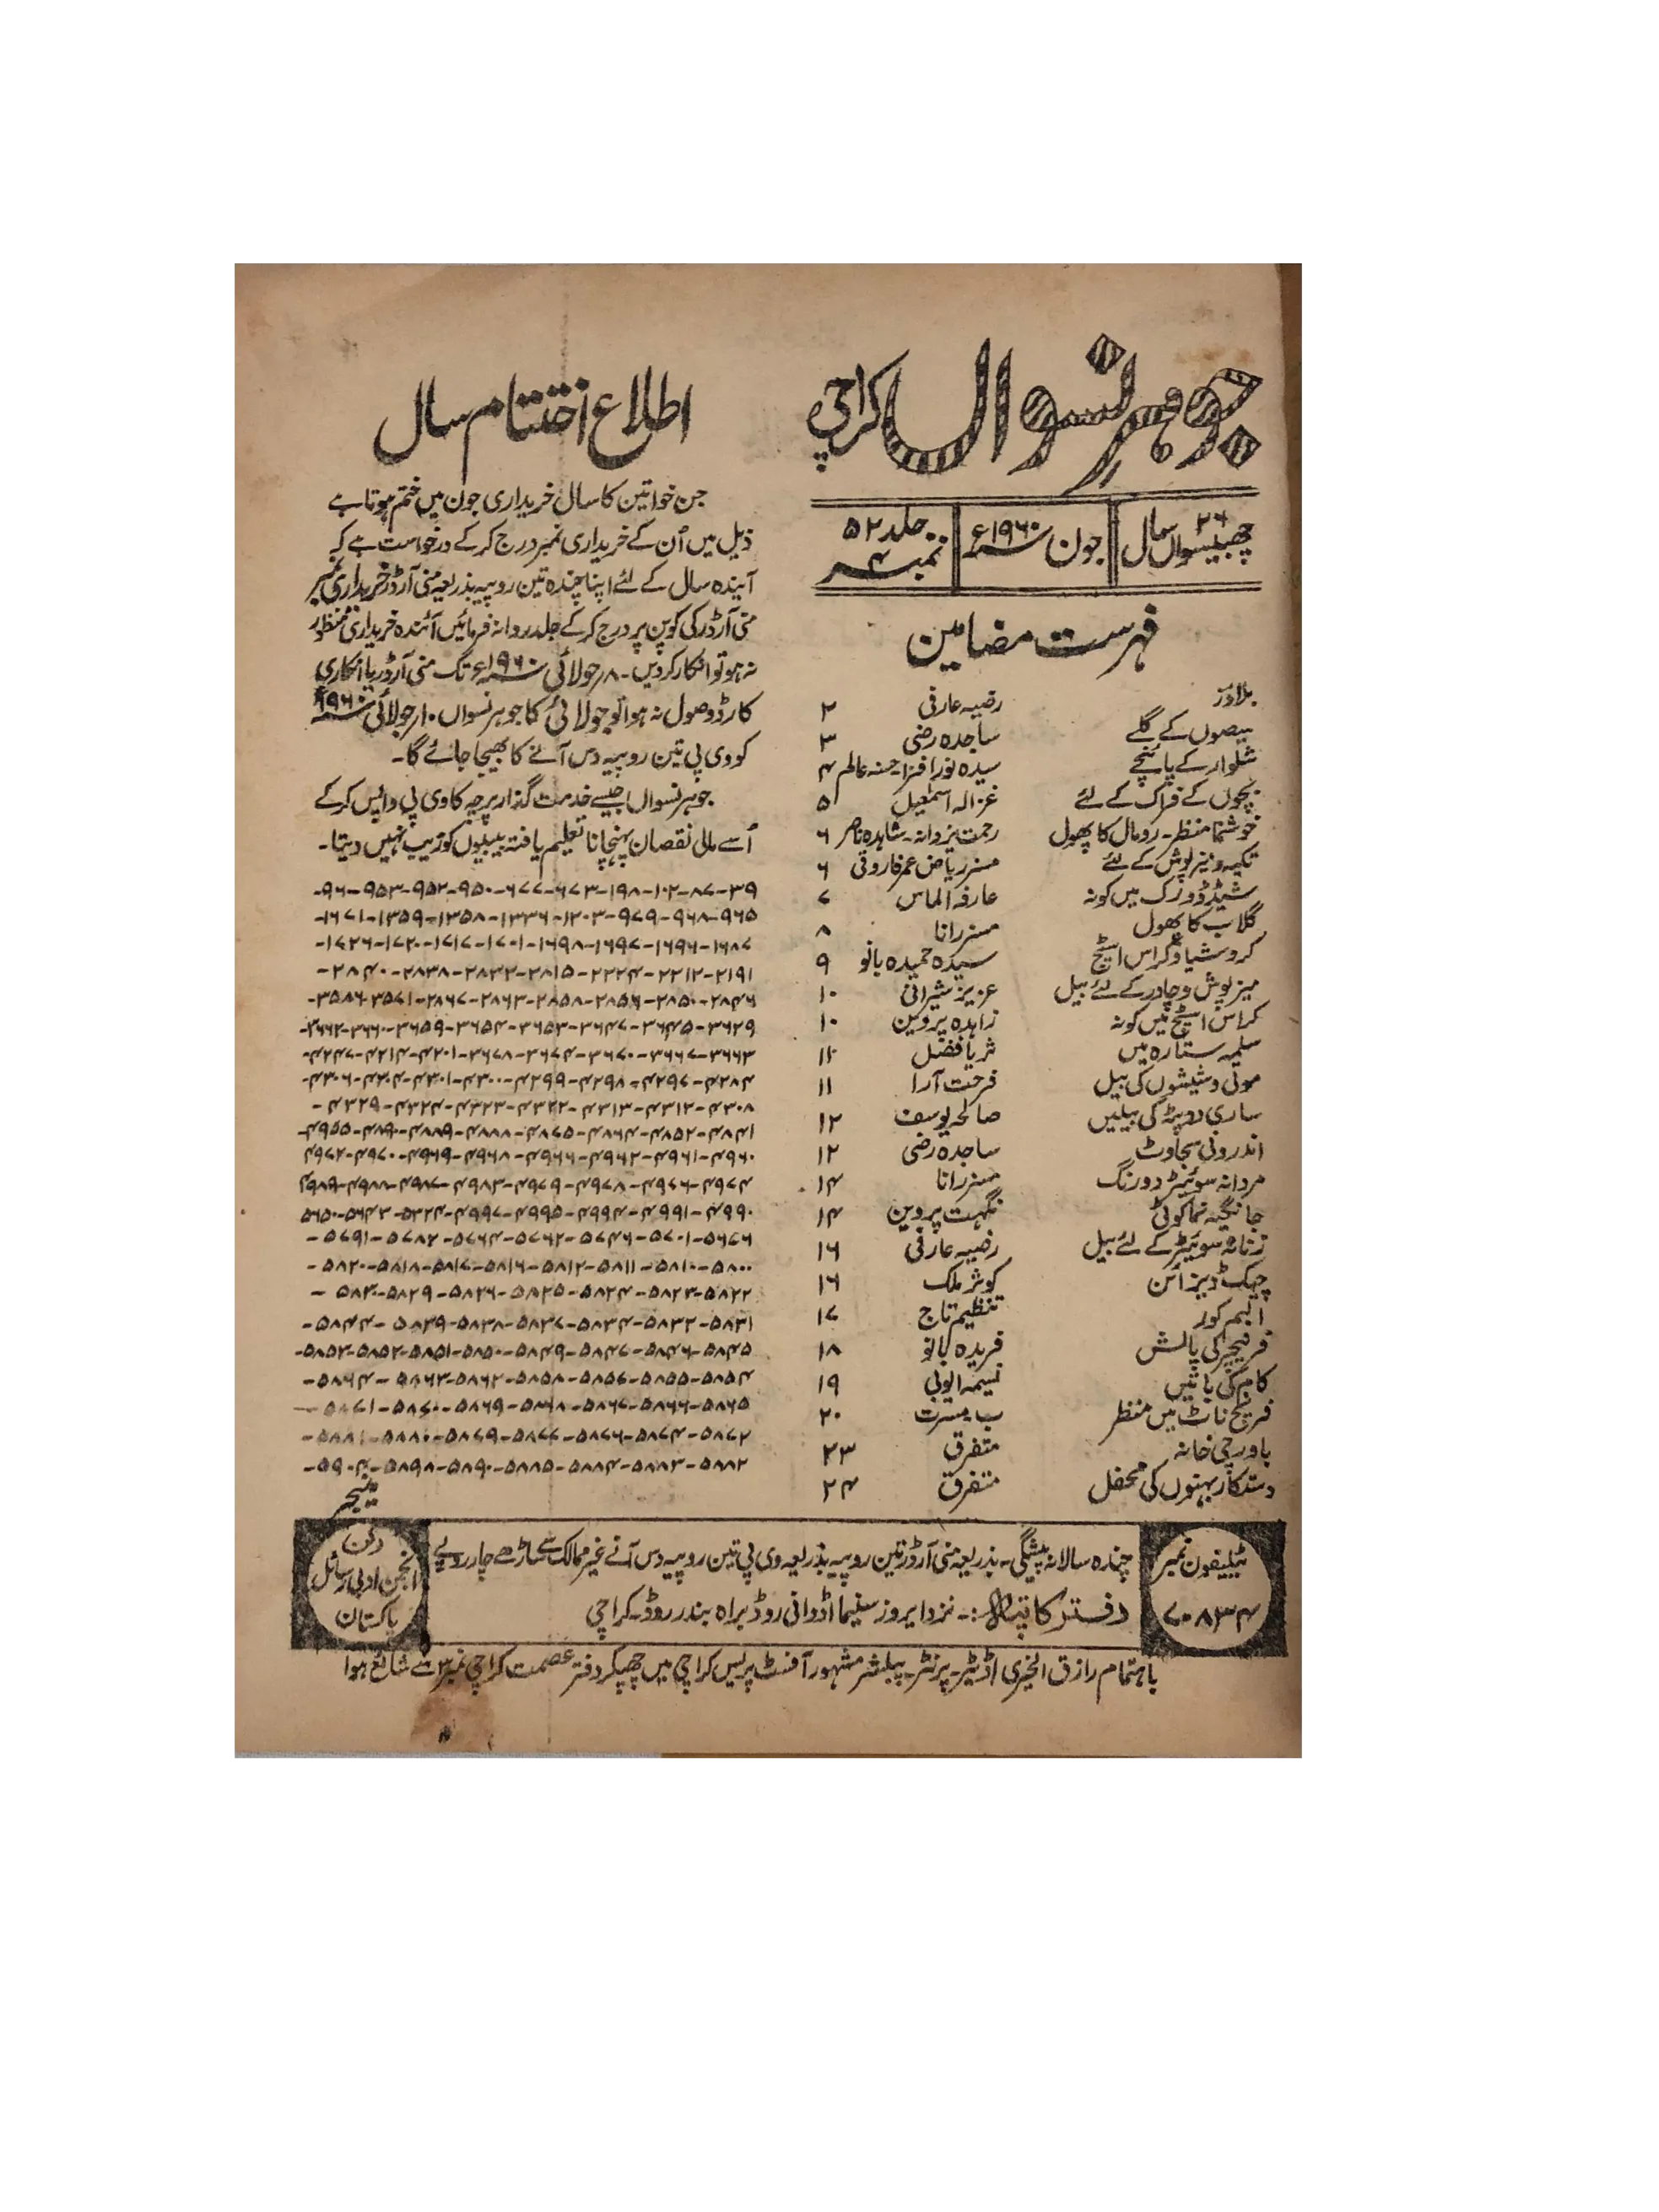 جوہر نسواں کراچی
چھبیسواں ۲۶ سال
جون ۱۹۶۰ء
جلد ۵۲
نمبر ۴
فہرست مضامین
بلاوز رضیہ عارفی ۲
قمیصوں کے گلے ساجدہ رضی ۳
شلوار کے پائنچے سیدہ نور افزا۔حسنہ عالم ۴
بچوں کے فراک کے لئے غزالہ اسمٰعیل ۵
خوشنما منظر۔ رومال کا پھول رحمت یزدانہ۔ شاہدہ ناصر ۶
تکیہ و میز پوش کے لئے مسز ریاض عمر فاروقی ۶
شیڈڈ ورک میں کونہ عارفہ الماس ۷
گلاب کا پھول مسز رانا ۸
کروشیا و کراس اسٹیچ سیدہ حمیدہ بانو ۹
میز پوش و چادر کے لئے بیل عزیز شیرانی ۱۰
کراس اسٹیچ میں کونہ زاہدہ پروین ۱۰
سلمہ ستارہ میں ثریا فضل ۱۱
موتی و شیشوں کی بیل فرحت آرا ۱۱
ساری دوپٹہ کی بیلیں صالحہ یوسف ۱۲
اندرونی سجاوٹ ساجدہ رضی ۱۲
مردانہ سوئیٹر دو رنگ مسز رانا ۱۴
جانگیہ نما کوٹی نگہت پروین ۱۴
زنانہ سوئیٹر کے لئے بیل رضیہ عارفی ۱۶
چیک ڈیزائن کوثر ملک ۱۶
البم کور تنظیم تاج ۱۷
فرنیچر کی پالش فریدہ بانو ۱۸
کام کی باتیں نسیمہ ایوبی ۱۹
فرنچ ناٹ میں منظر ب۔مسرت ۲۰
باورچی خانہ متفرق ۲۳
دستکار بہنوں کی محفل متفرق ۲۴
اطلاع اختتام سال
جن خواتین کا سال خریداری جون میں ختم ہوتا ہے
ذیل میں اُن کے خریداری نمبر درج کر کے درخواست ہے کہ
آیندہ سال کے لئے اپنا چندہ تین روپیہ بذریعہ منی آرڈر خریداری نمبر
منی آرڈر کی کوپن پر درج کر کے جلد روانہ فرمائیں آئندہ خریداری منظور
نہ ہو تو انکار کر دیں۔ ۸ر جولائی ۱۹۶۰ء تک منی آرڈر یا انکاری
کارڈ وصول نہ ہوا تو جولائی کا جوہر نسواں ۱۰ر جولائی ۱۹۶۰ء
کو وی پی تین روپیہ دس آنے کا بھیجا جائے گا۔
جوہر نسواں جیسے خدمت گذار پرچہ کا وی پی واپس کر کے
اُسے مالی نقصان پہنچانا تعلیم یافتہ بیبیوں کو زیب نہیں دیتا۔
۳۹-۸۷-۱۰۲-۱۹۸-۶۷۳-۶۷۷-۹۵۰-۹۵۲-۹۵۳-۹۶۰-
۹۶۵-۹۶۸-۹۷۹-۱۲۰۳-۱۳۳۶-۱۳۵۸-۱۳۵۹-۱۶۷۱-
۱۶۸۷-۱۶۹۶-۱۶۹۷-۱۶۹۸-۱۷۰۱-۱۷۱۷-۱۷۲۰-۱۷۲۶-
۲۱۹۱-۲۲۱۲-۲۲۲۴-۲۸۱۵-۲۸۳۲-۲۸۳۸-۲۸۴۰-
۲۸۴۶-۲۸۵۰-۲۸۵۶-۲۸۵۸-۲۸۶۳-۲۸۶۷-۳۵۷۱-۳۵۸۶-
۳۶۲۹-۳۶۴۵-۳۶۴۷-۳۶۵۳-۳۶۵۴-۳۶۵۹-۳۶۶۰-۳۶۶۲-
۳۶۶۳-۳۶۶۷-۳۶۷۰-۳۶۷۴-۳۶۷۸-۴۲۰۱-۴۲۱۴-۴۲۴۷-
۴۲۸۴-۴۲۹۷-۴۲۹۸-۴۲۹۹-۴۳۰۰-۴۳۰۱-۴۳۰۴-۴۳۰۶-
۴۳۰۸-۴۳۱۲-۴۳۱۳-۴۳۲۲-۴۳۲۳-۴۳۲۴-۴۳۲۹-
۴۸۴۱-۴۸۵۲-۴۸۶۴-۴۸۷۵-۴۸۸۸-۴۸۸۹-۴۸۹۰-۴۹۵۵-
۴۹۶۰-۴۹۶۱-۴۹۶۲-۴۹۶۶-۴۹۶۸-۴۹۶۹-۴۹۷۰-۴۹۷۲
۴۹۷۴-۴۹۷۶-۴۹۷۸-۴۹۷۹-۴۹۸۳-۴۹۸۷-۴۹۸۸-۴۹۸۹
۴۹۹۰-۴۹۹۱-۴۹۹۴-۴۹۹۵-۴۹۹۷-۵۳۲۴-۵۶۴۳-۵۶۵۰
۵۶۷۶-۵۷۰۱-۵۷۴۶-۵۷۶۲-۵۷۶۴-۵۷۸۲-۵۷۹۱-
۵۸۰۰-۵۸۱۰-۵۸۱۱-۵۸۱۲-۵۸۱۶-۵۸۱۷-۵۸۱۸-۵۸۲۰-
۵۸۲۲-۵۸۲۳-۵۸۲۴-۵۸۲۵-۵۸۲۶-۵۸۲۹-۵۸۳۰-
۵۸۳۱-۵۸۳۲-۵۸۳۴-۵۸۳۷-۵۸۳۸-۵۸۳۹-۵۸۴۴-
۵۸۴۵-۵۸۴۶-۵۸۴۷-۵۸۴۹-۵۸۵۰-۵۸۵۱-۵۸۵۲-۵۸۵۳-
۵۸۵۴-۵۸۵۵-۵۸۵۷-۵۸۵۸-۵۸۶۲-۵۸۶۳-۵۸۶۴-
۵۸۶۵-۵۸۶۶-۵۸۶۷-۵۸۶۸-۵۸۶۹-۵۸۷۰-۵۸۷۱-
۵۸۷۲-۵۸۷۴-۵۸۷۶-۵۸۷۷-۵۸۷۹-۵۸۸۰-۵۸۸۱-
۵۸۸۲-۵۸۸۳-۵۸۸۴-۵۸۸۵-۵۸۹۰-۵۸۹۸-۵۹۰۴-
منیجر
ٹیلیفون نمبر
۷۰۸۳۴
چندہ سالانہ پیشگی۔ بذریعہ منی آرڈر تین روپیہ بذریعہ وی پی تین روپیہ دس آنے غیر ممالک سے ساڑھے چار روپے
دفتر کا پتہ:۔ نزد ایروز سنیما اڈوانی روڈ براہ بندر روڈ۔ کراچی
رکن
انجمن ادبی رسائل
پاکستان
باہتمام رازق الخیری اڈیٹر۔پرنٹر۔پبلشر مشہور آفسٹ پریس کراچی میں چھپکر دفتر عصمت کراچی نمبر ۳ سے شائع ہوا